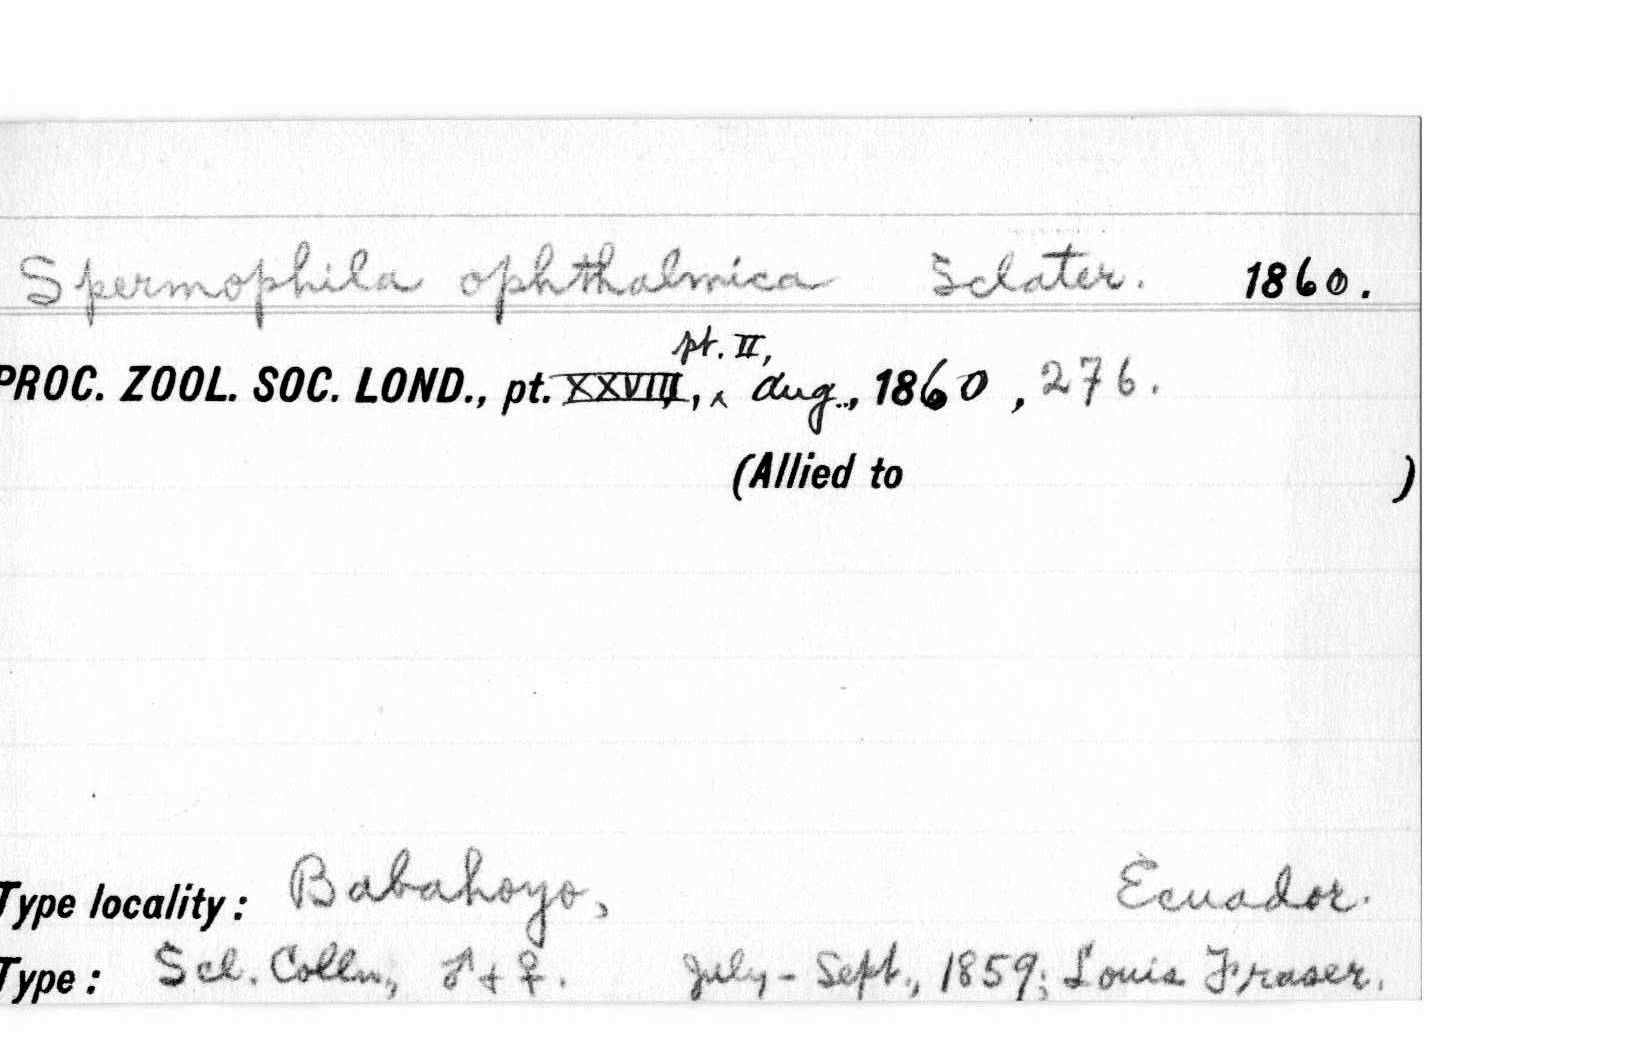 Spermophila ophthalmica Sclater. 1860.
pt. II,
PROC. ZOOL. SOC. LOND., pt. XXVIII, ^ Aug., 1860, 276.
(Allied to )
Type locality: Babahoyo, Ecuador.
Type: Scl. Colln, ♂ + ♀. July - Sept., 1859; Louis Fraser.